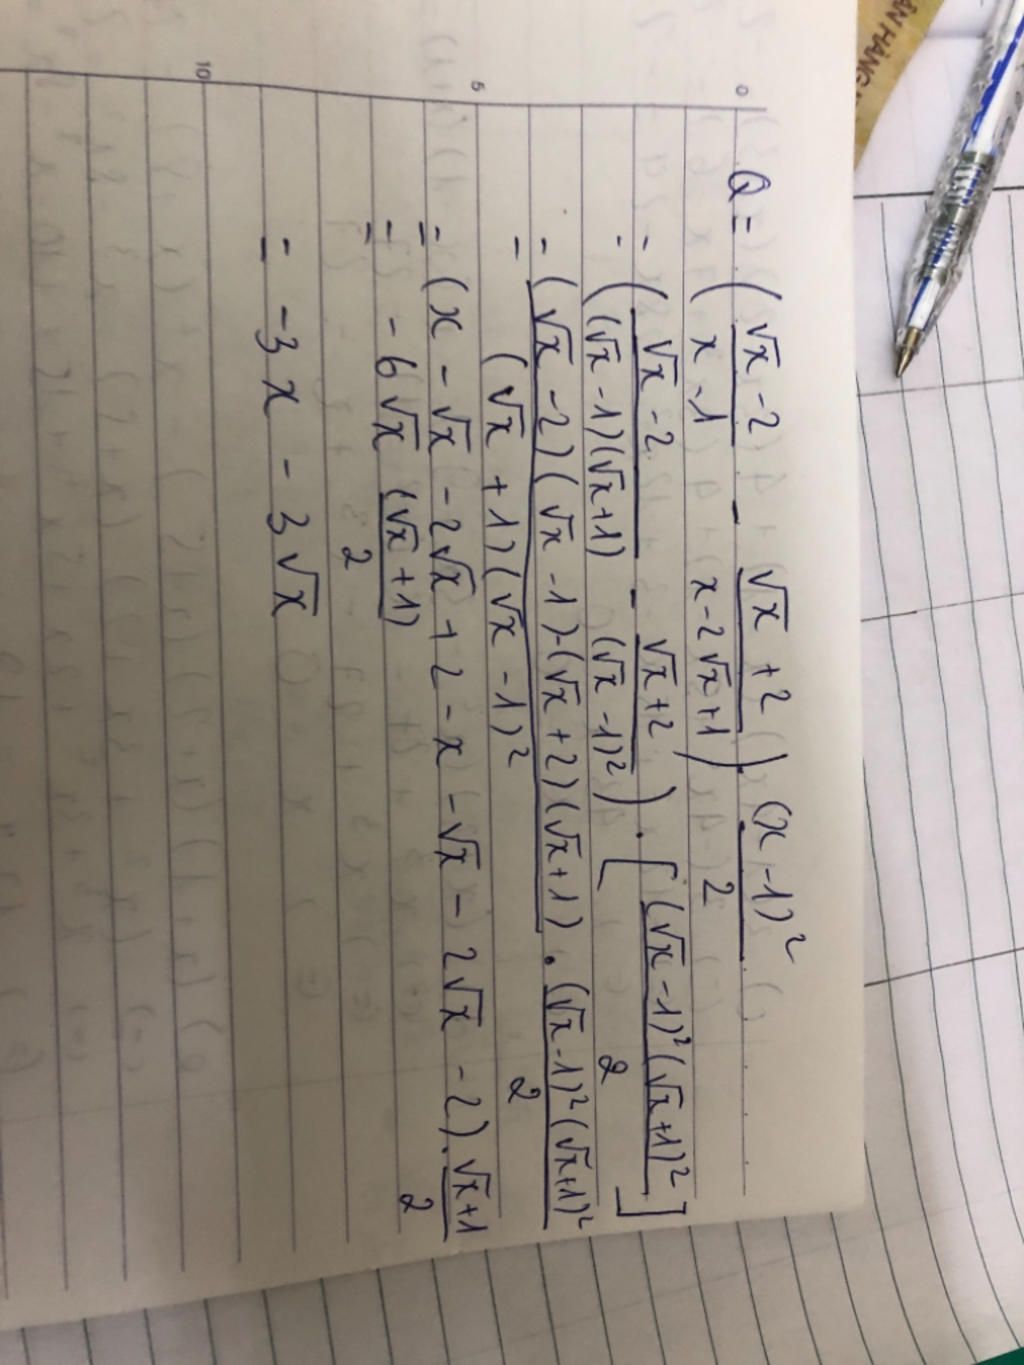 ÂN HÀNG
0
5
10
Q = ( (√x - 2)/(x - 1) - (√x + 2)/(x - 2√x + 1) ) (x - 1)²/2
= ( (√x - 2)/((√x - 1)(√x + 1)) - (√x + 2)/((√x - 1)²) ) . [ (√x - 1)²(√x + 1)²/2 ]
= ((√x - 2)(√x - 1) - (√x + 2)(√x + 1))/((√x + 1)(√x - 1)²) . (√x - 1)²(√x + 1)²/2
= (x - √x - 2√x + 2 - x - √x - 2√x - 2) . (√x + 1)/2
= - 6√x (√x + 1)/2
= -3x - 3√x